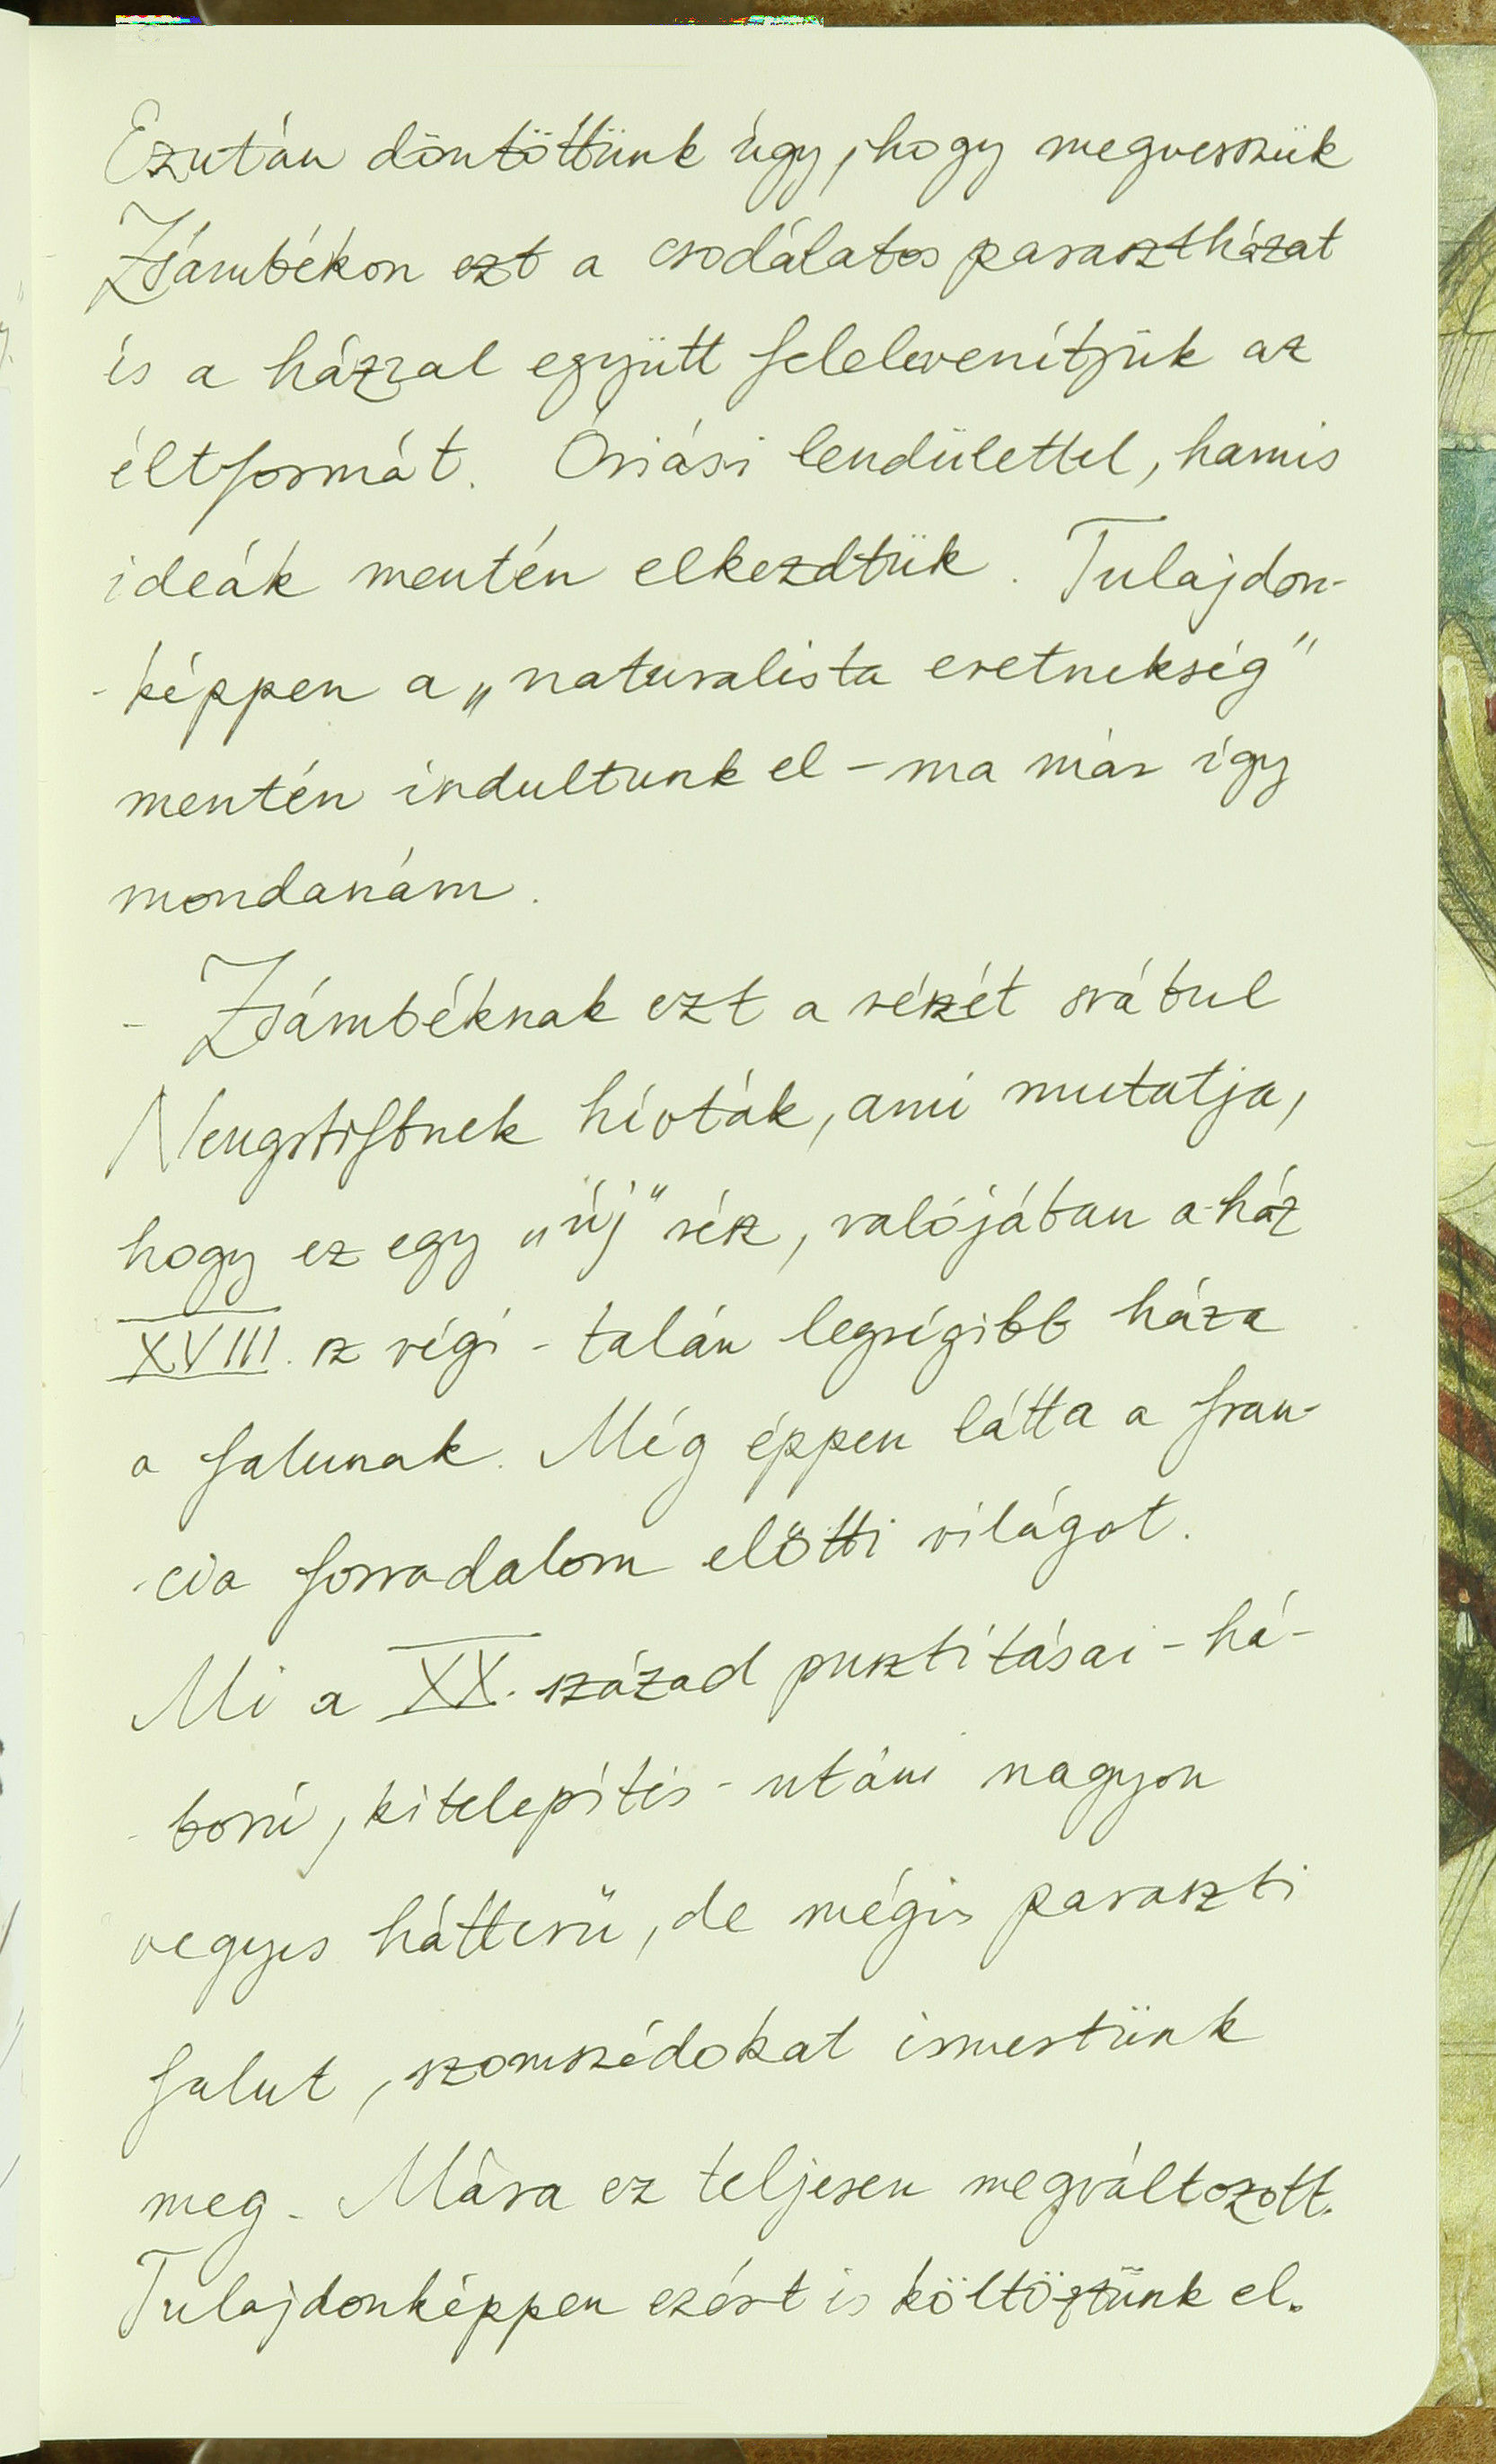 Ezután döntöttünk úgy, hogy megvesszük
Zsámbékon ezt a csodálatos parasztházat
és a házzal együtt felelevenítjük az
éltformát. Óriási lendülettel, hamis
ideák mentén elkezdtük. Tulajdon-
-képpen a „naturalista eretnekség"
mentén indultunk el – ma már így
mondanám.
- Zsámbéknak ezt a részét svábul
Neugstiftnek hívták, ami mutatja,
hogy ez egy „új" rész, valójában a ház
XVIII. sz végi - talán legrégibb háza
a falunak. Még éppen látta a fran-
-cia forradalom előtti világot.
Mi a XX. század pusztításai - há-
-ború, kitelepítés - utáni nagyon
vegyes hátterű, de mégis paraszti
falut, szomszédokat ismertünk
meg. Mára ez teljesen megváltozott.
Tulajdonképpen ezért is költöztünk el.